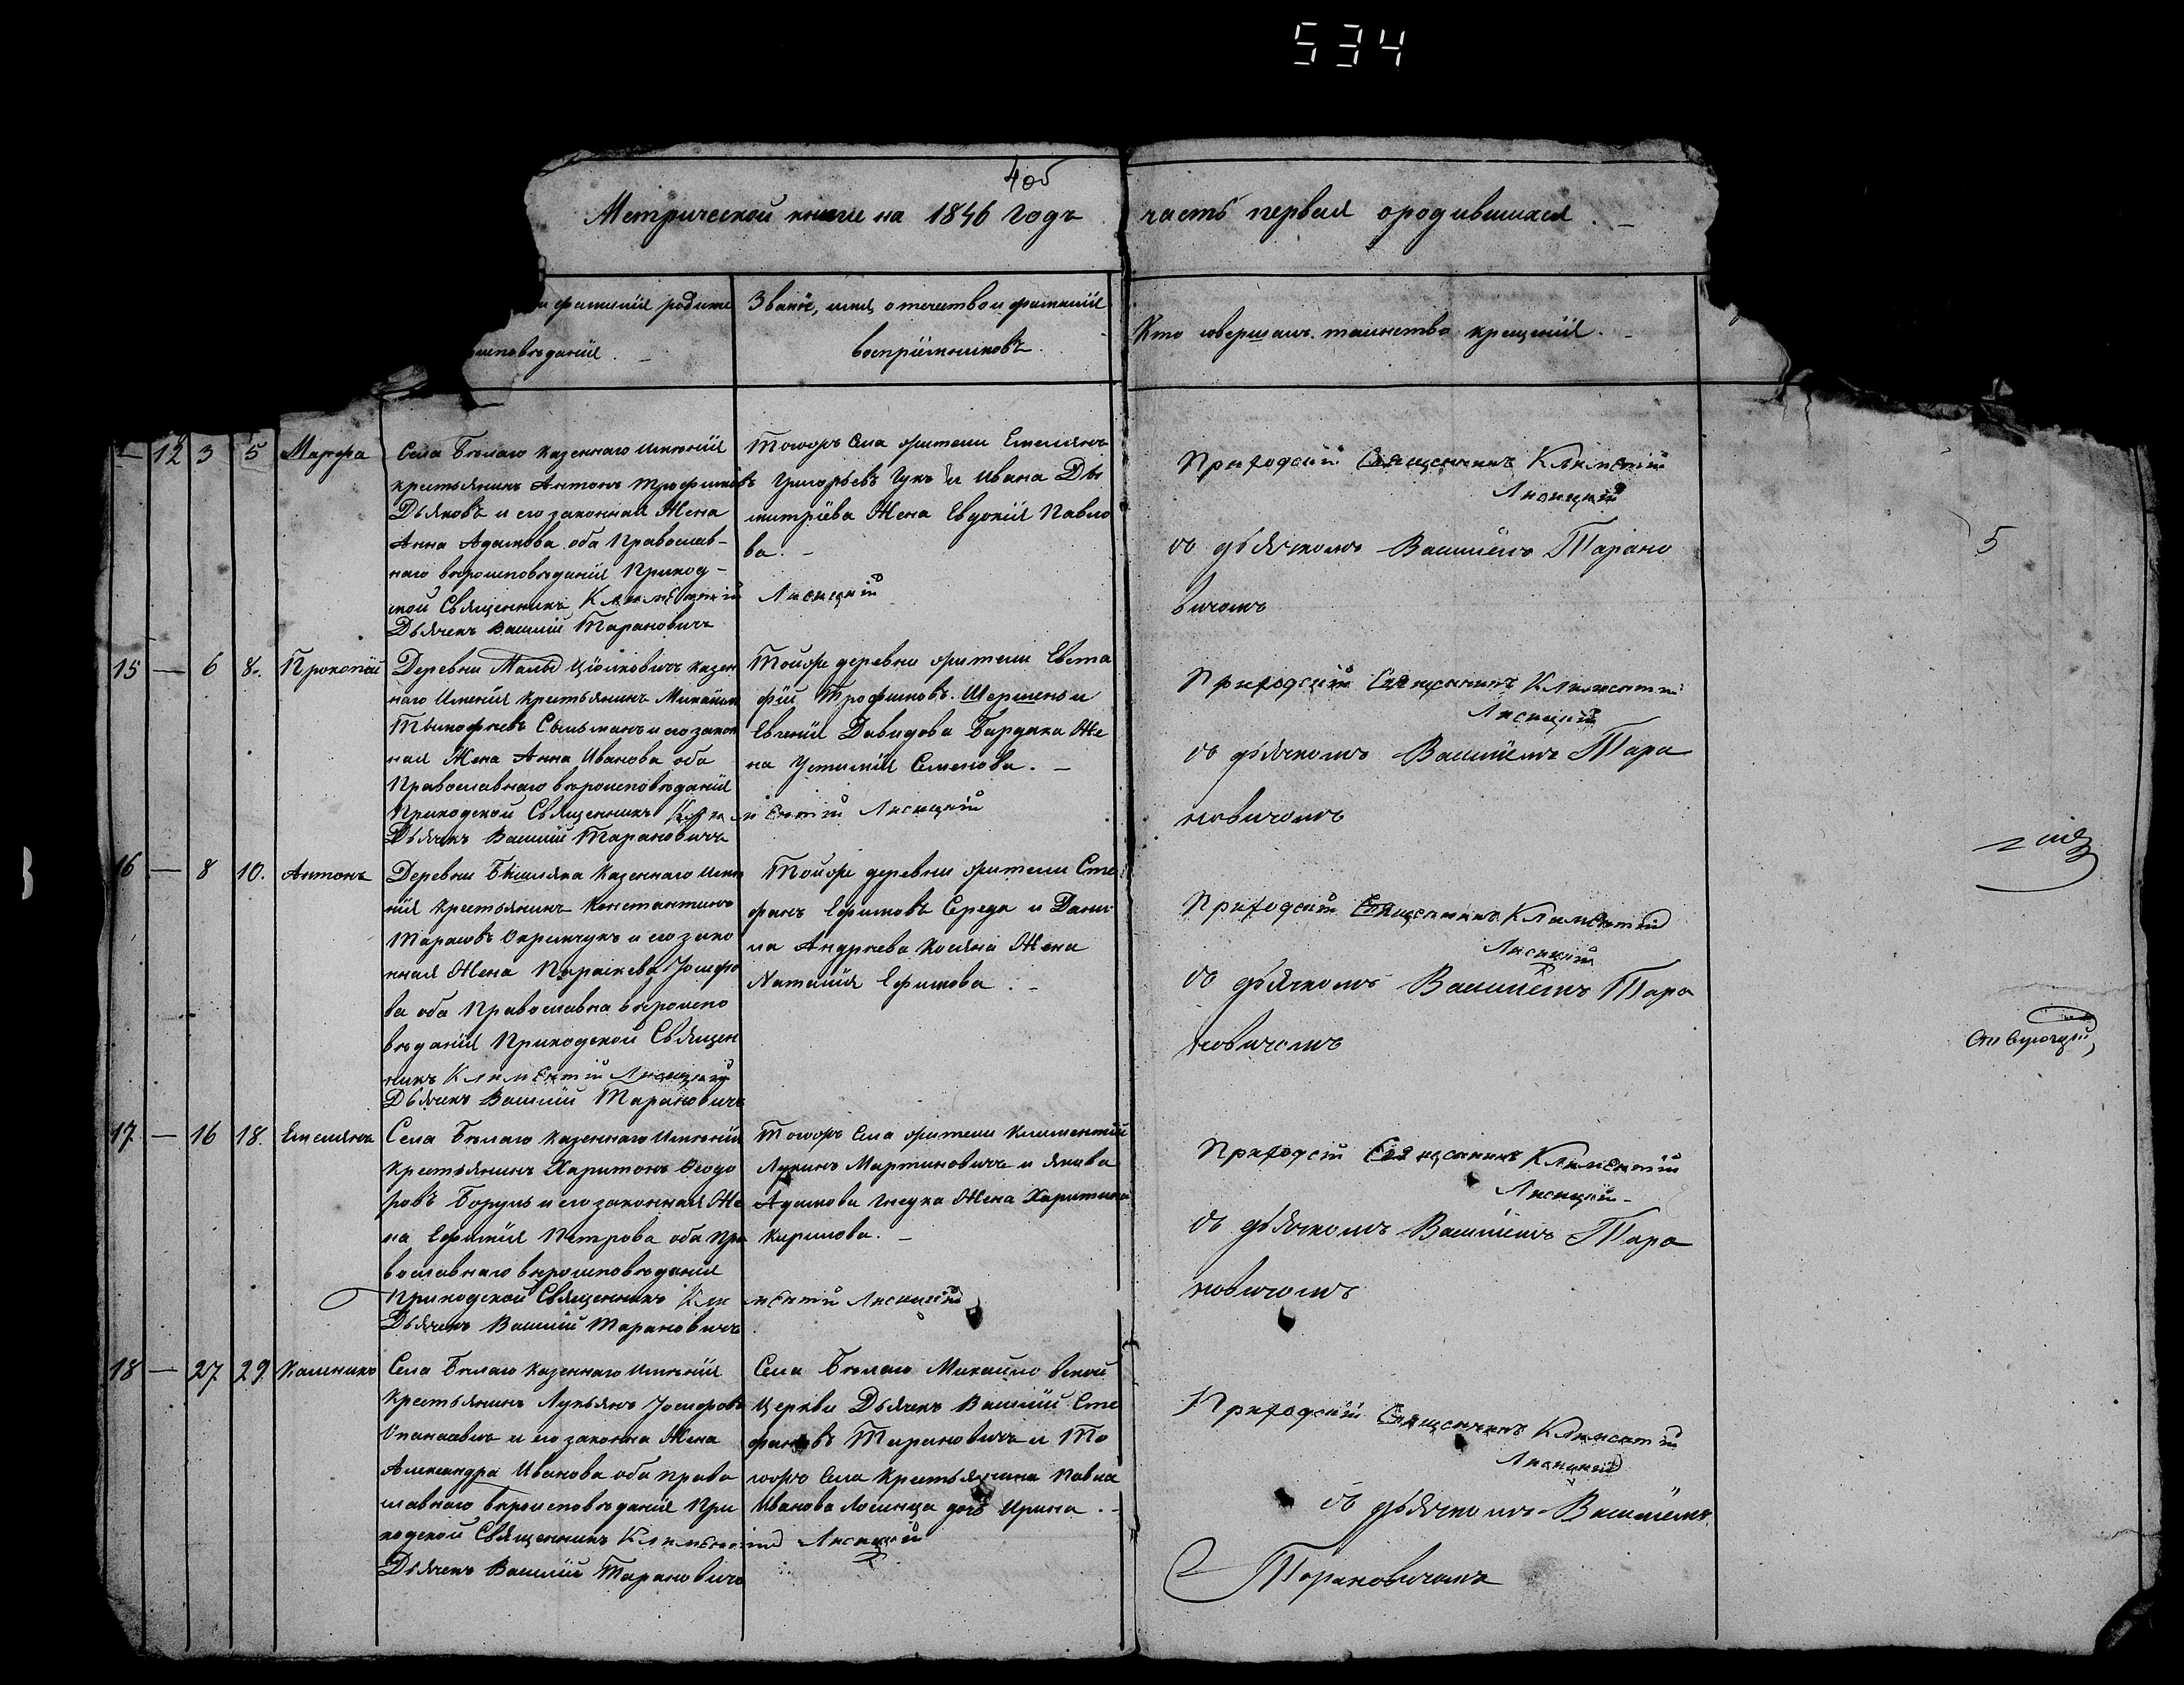 534
4об
Метрической книги на 1846 Годъ часть первая ородившихся. –
и фамилія родите
исповѣданія. –
Званіе, имя, отечество и фамилія
воспріемниковъ.
Кто совершалъ таинство крещенія. –
– 12 3 5 Марфа
Села Бѣлаго казеннаго Имѣнія
крестьянинъ Антонъ Трофимовъ
Дьяковъ и его законная Жена
Анна Адамова оба Православ-
наго вѣроисповѣданія Приход-
ской Священникъ Климентій Лисицкій
Дьячекъ Василій Тарановичъ
Тогожъ Села жители Емельянъ
Григорьевъ Гукъ и Ивана Ды
митріева Жена Евдокія Павло
ва. –
Приходскій Священникъ Климентій
Лисицкій
съ дьячкомъ Василіемъ Тарано
вичомъ
5
15 – 6 8. Прокопій
Деревни Малы Цѣпковичъ казен
наго Имѣнія крестьянинъ Михаилъ
Тимофѣевъ и его закон
ная Жена Анна Иванова оба
Православнаго вѣроисповѣданія
Приходской Священникъ Климентій Лисицкій
Дьячекъ Василій Тарановичъ
Тойже деревни жители Евста
фій Трофимовъ Шершень и
Евгенія Давидова Бардака Же
на Устинія Семенова. –
Приходскій Священникъ Климентій
Лисицкій
съ дьячкомъ Василіемъ Тара
новичомъ
16 – 8 10. Антонъ
Деревни казеннаго Имѣ
нія Крестьянинъ Константинъ
Тарасовъ Охримчукъ и его зако
нная Жена Параскева Іосифо
ва оба Православна вѣроиспо
вѣданія Приходской Священ
никъ Климентій Лисицкій
Дьячекъ Василій Тарановичъ
Тойже деревни жители Сте
фанъ Ефимовъ Середа и Дани
ла Андреева Косяна Жена
Наталія Ефимова. –
Приходскій Священникъ Климентій
Лисицкій
съ дьячкомъ Василіемъ Тара
новичомъ
17 – 16 18. Емельянъ
Села Бѣлаго казеннаго Имѣнія
крестьянинъ Харитонъ Ѳеодо
ровъ Боруль и его законная Же
на Ефимія Петрова оба пра
вославнаго вѣроисповѣданія
Приходской Священникъ Климентій Лисицкій
Дьячекъ Василій Тарановичъ
Тогожъ Села жители Климентій
Лукинъ Мартиновичъ и Якова
Адамова Жена Харитина
Кирилова. –
Приходскій Священникъ Климентій
Лисицкій
съ дьячкомъ Василіемъ Тара
новичомъ
18 – 27 29. Калинико
Села Бѣлаго казеннаго Имѣнія
крестьянинъ Лукьянъ Іосифовъ
Опанасевичъ и его законна Жена
Александра Иванова оба право
славнаго вѣроисповѣданія При
ходской Священникъ Климентій Лисицкій
Дьячекъ Василій Тарановичъ
Села Бѣлаго Михайловской
Церкви Дьячекъ Василій Сте
фановъ Тарановичъ и То
гожъ Села Крестьянина Павла
Иванова Лосинца дочь Ирина. –
Приходскій Священникъ Климентій
Лисицкій
съ дьячкомъ Василіемъ
Тарановичомъ